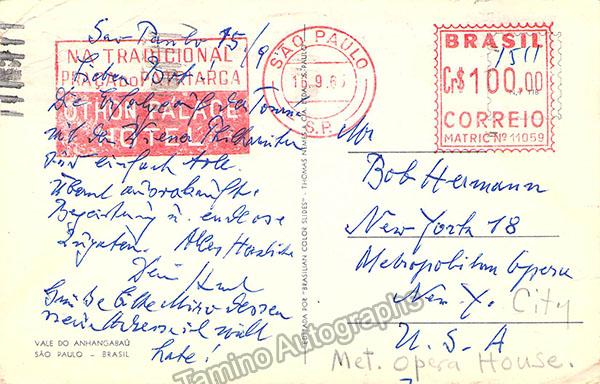 Sao Paulo 15/9
NA TRADICIONAL
PRAÇA DO PATRIARCA
OTHON PALACE
HOTEL
Lieber Bob!
Die Erfolge auf der Tournee
mit den Wiener Philharmonikern
sind einfach toll.
Überall ausverkaufte
Begeisterung u. endlose
Zugaben. Alles Herzliche
Dein
Grüße
hate!
VALE DO ANHANGABAÚ
SÃO PAULO – BRASIL
EDITADA POR "BRASILIAN COLOR SLIDES" – THOMAS
SÃO PAULO
16.9.65
S.P.
BRASIL
1511
Cr$ 100,00
CORREIO
MATRIC Nº 11059
Mr
Bob Hermann
New York 18
Metropolitan Opera
New Y. City
U. S. A
Met. Opera House.
Tamino Autographs